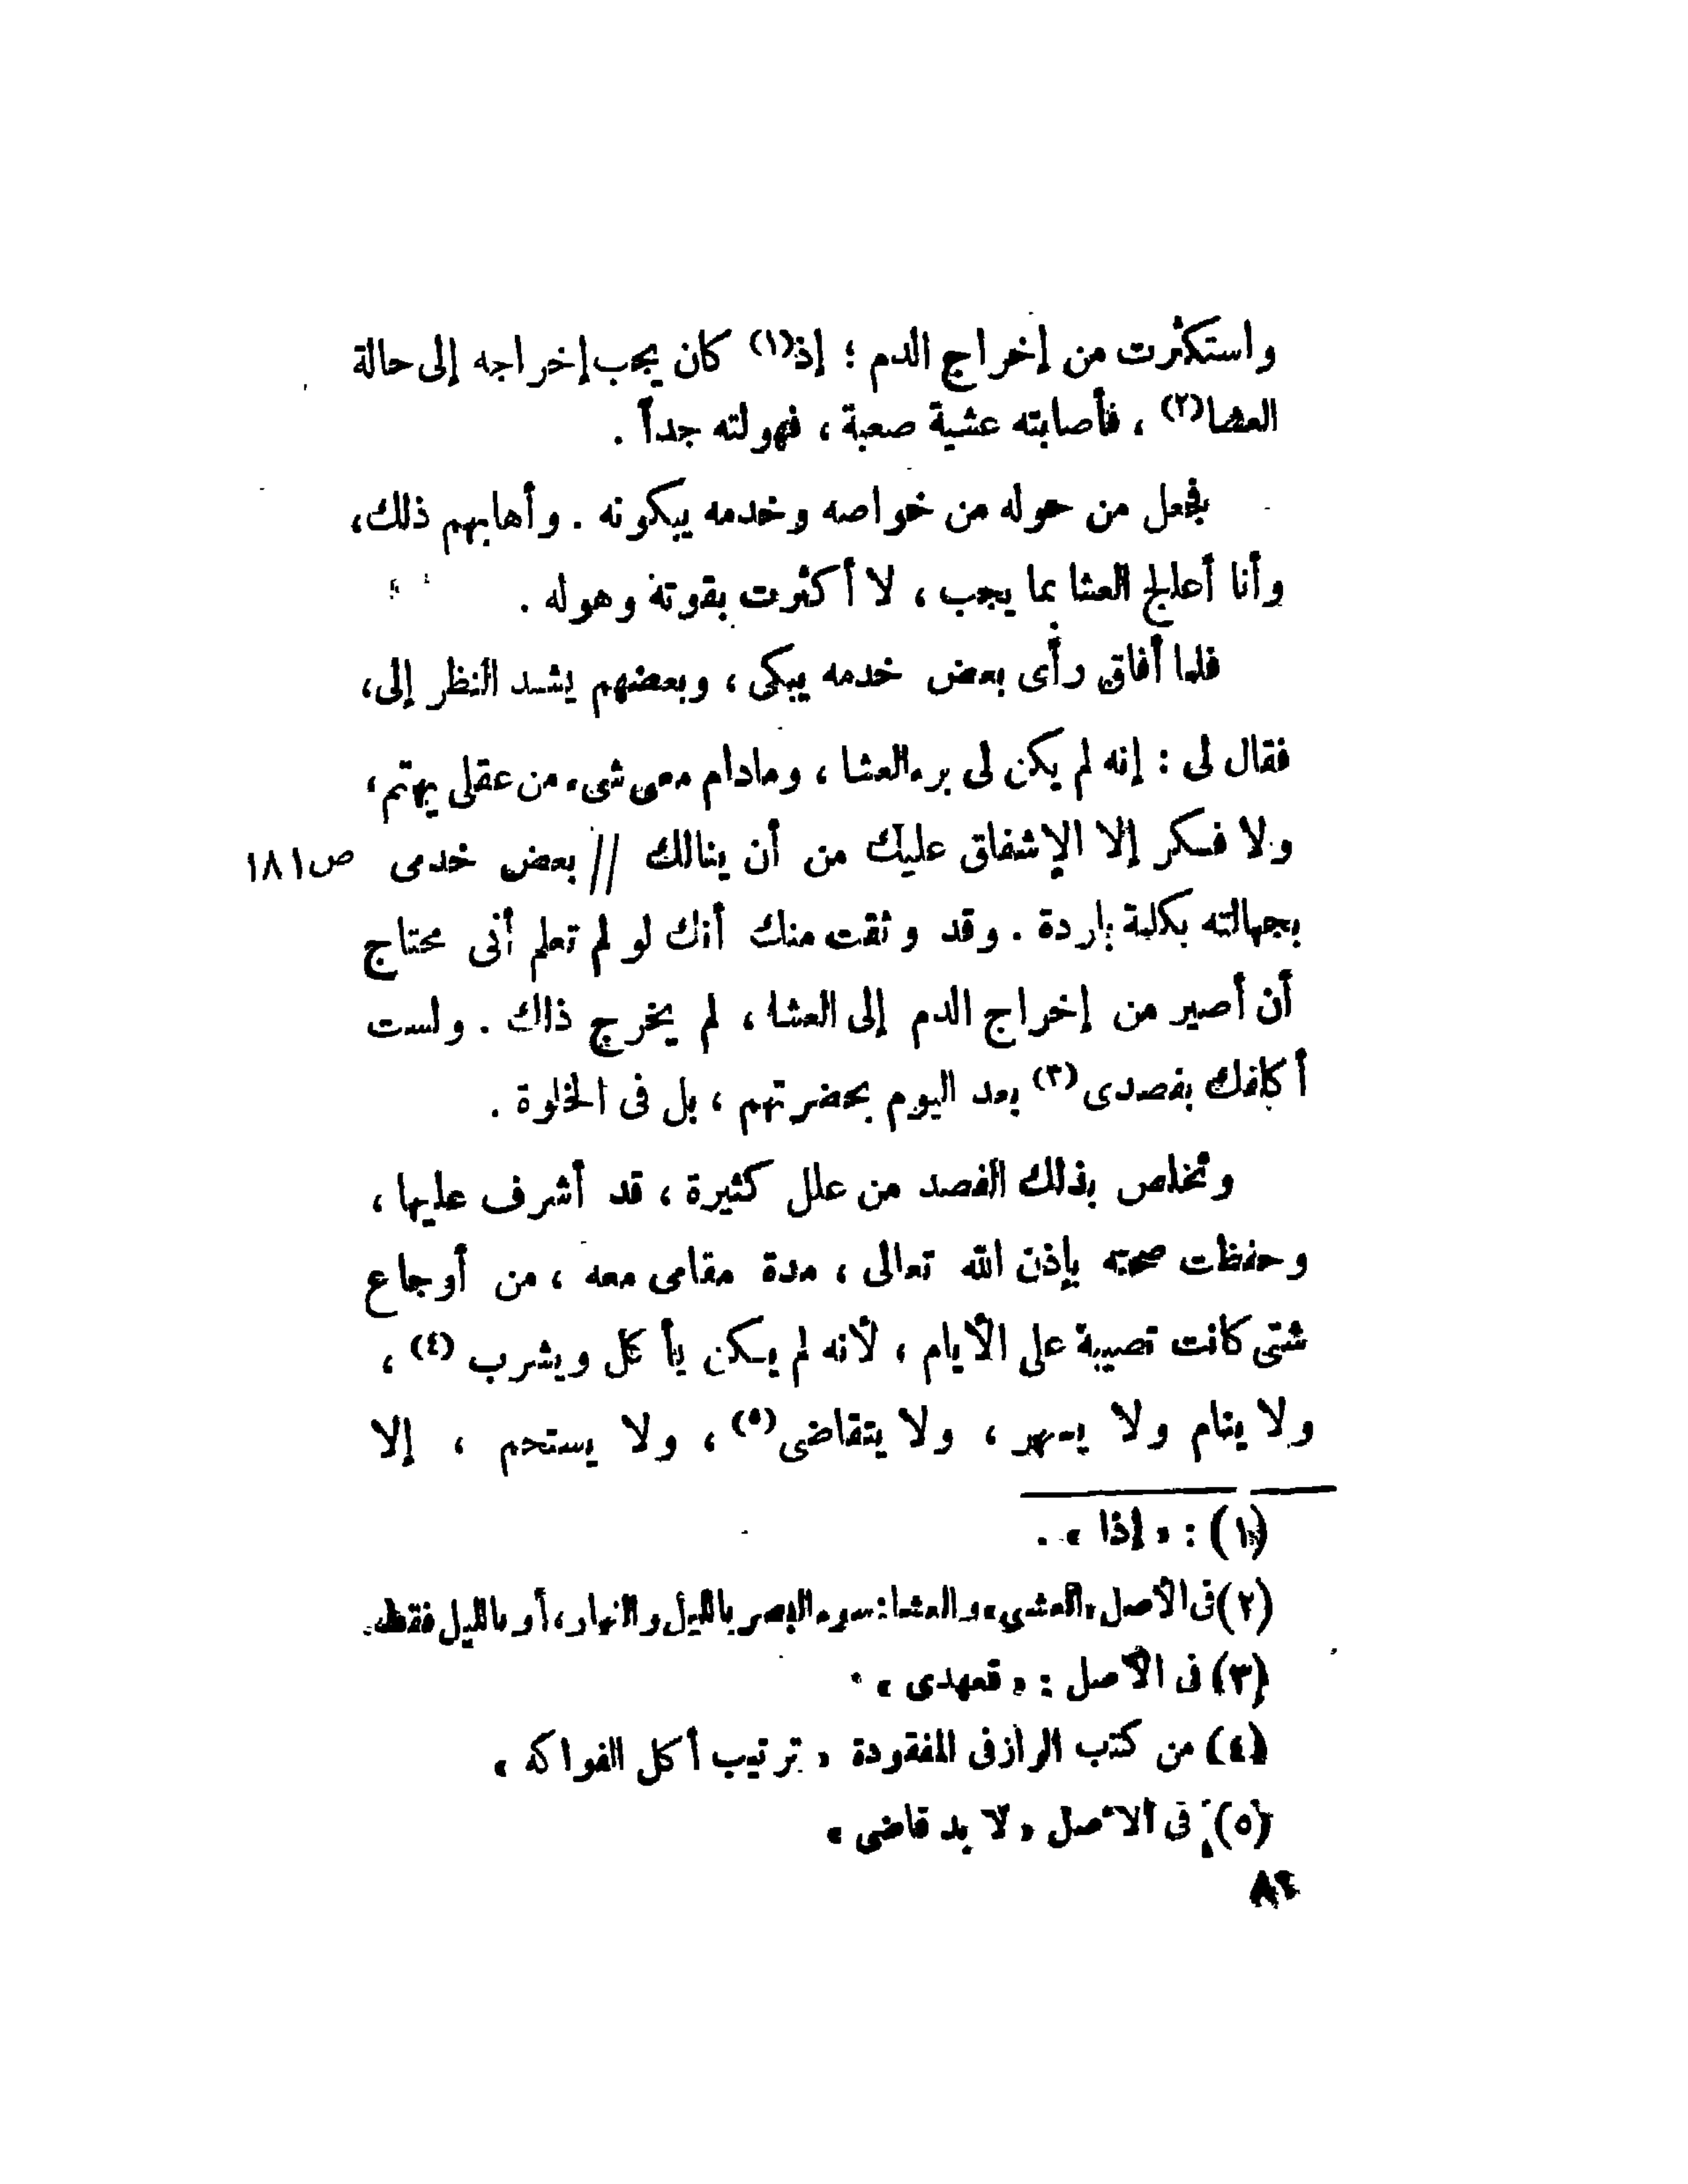 واستكثرت من إخراج الدم ؛ إذ(١) كان يجب إخراجه إلى حالة
العشا(٢) ، فأصابته عشية صعبة ، فهولته جداً .
فجعل من حوله من خواصه وخدمه يبكونه . وأهابهم ذلك،
وأنا أعالج العشا بما يجب ، لا أكثرت بقوتة وهوله .
فلما أفاق رأى بعض خدمه يبكى ، وبعضهم يشد النظر إلى،
فقال لى : إنه لم يكن لى برء العشا ، ومادام معى شىء من عقلى يهتم ،
ولا فكر إلا الإشفاق عليك من أن ينالك // بعض خدمى ص١٨١
بجهالته بكلمة باردة . وقد وثقت منك أنك لو لم تعلم أنى محتاج
أن أصير من إخراج الدم إلى العشا ، لم يخرج ذاك . ولست
أكلفك بفصدى(٣) بعد اليوم بحضرتهم ، بل فى الخلوة .
وتخلص بذلك الفصد من علل كثيرة ، قد أشرف عليها ،
وحفظت صحته بإذن الله تعالى ، مدة مقامى معه ، من أوجاع
شتى كانت تصيبة على الأيام ، لأنه لم يكن يأكل ويشرب (٤) ،
ولا ينام ولا يسهر ، ولا يتقاضى(٥) ، ولا يستحم ، إلا
(١) : « إذا » .
(٢) فى الأصل «العشى» والعشا: سوء البصر بالليل والنهار، أو بالليل فقط.
(٣) فى الأصل : « قعهدى » .
(٤) من كتب الرازى المفقودة « ترتيب أكل الفواكه »
(٥) فى الأصل « لا يد قاضى »
٨٤